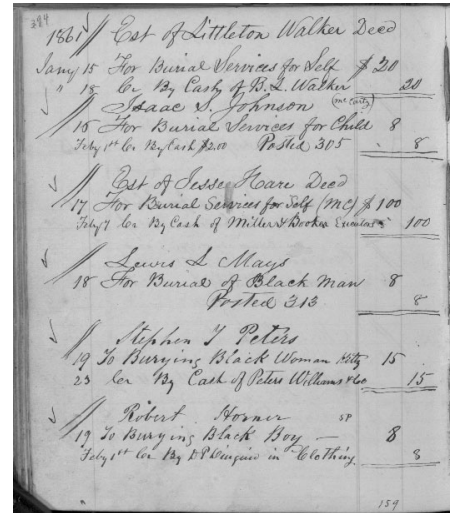 284
1861 Est of Littleton Walker Decd
Jany 15 For Burial Services for Self $ 20
" 18 Cr By Cash of B. L. Walker 20
Isaac S. Johnson (McCarty)
16 For Burial Services for Child 8
Feby 1st Cr By Cash $2.00 Posted 305 8
Est of Jesse Hare Decd
17 For Burial Services for Self (MC) $ 100
Feby 7 Cr By Cash of Miller & Booker Executors 100
Lewis L Mays
18 For Burial of Black Man 8
Posted 313 8
Stephen T Peters
19 To Burying Black Woman Kitty 15
23 Cr By Cash of Peters Williams & Co 15
Robert Horner SP
19 To Burying Black Boy — 8
Feby 1st Cr By in Clothing 8
159